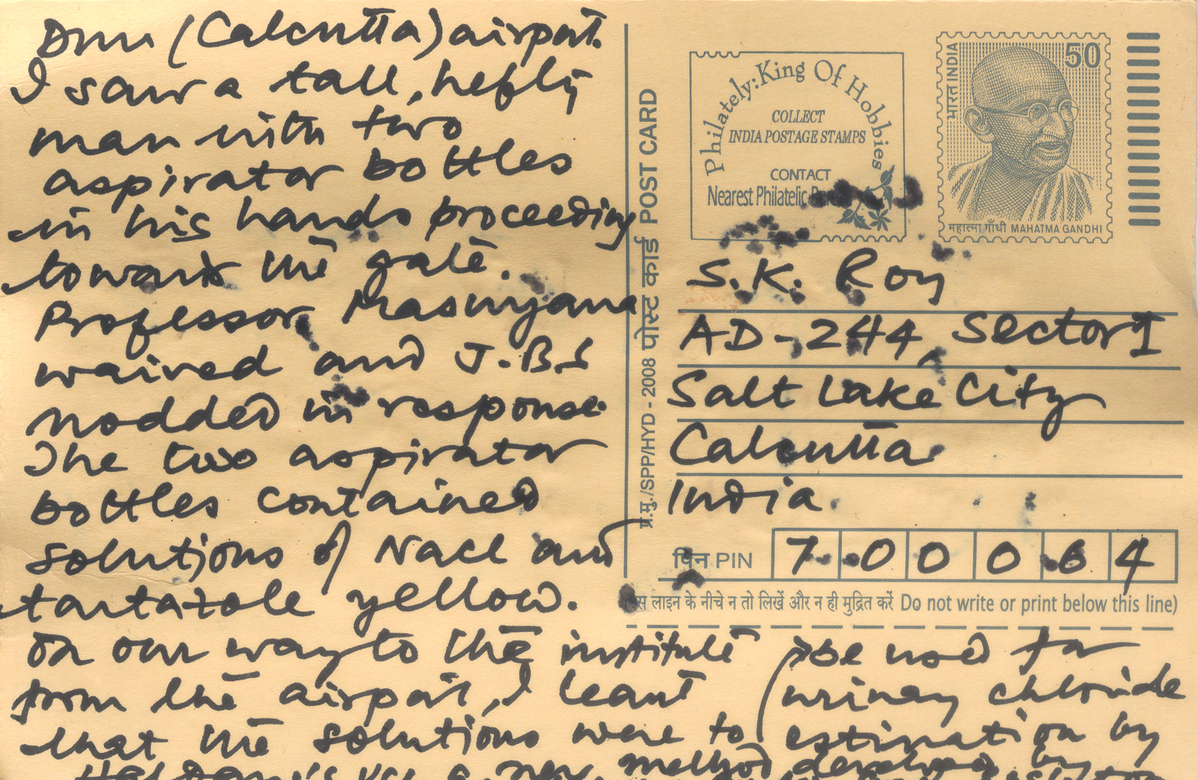 Dum (Calcutta) airport.
I saw a tall, hefty
man with two
aspirator bottles
in his hands proceeding
towards the gate.
Professor
waived and J.B.S
nodded in response.
The two aspirator
bottles contained
solutions of Nacl and
yellow.
On our way to the institute
from the airport, I leant
that the solutions were to
be used for
urinary chloride
estimation by
a new method developed by
प्र.मु./SPP/HYD - 2008 पोस्ट कार्ड POST CARD
Philately: King Of Hobbies
COLLECT
INDIA POSTAGE STAMPS
CONTACT
Nearest Philatelic
भारत INDIA
50
महात्मा गाँधी MAHATMA GANDHI
S.K. Roy
AD-244, Sector I
Salt Lake City
Calcutta
India.
पिन PIN 700064
इस लाइन के नीचे न तो लिखें और न ही मुद्रित करें Do not write or print below this line)